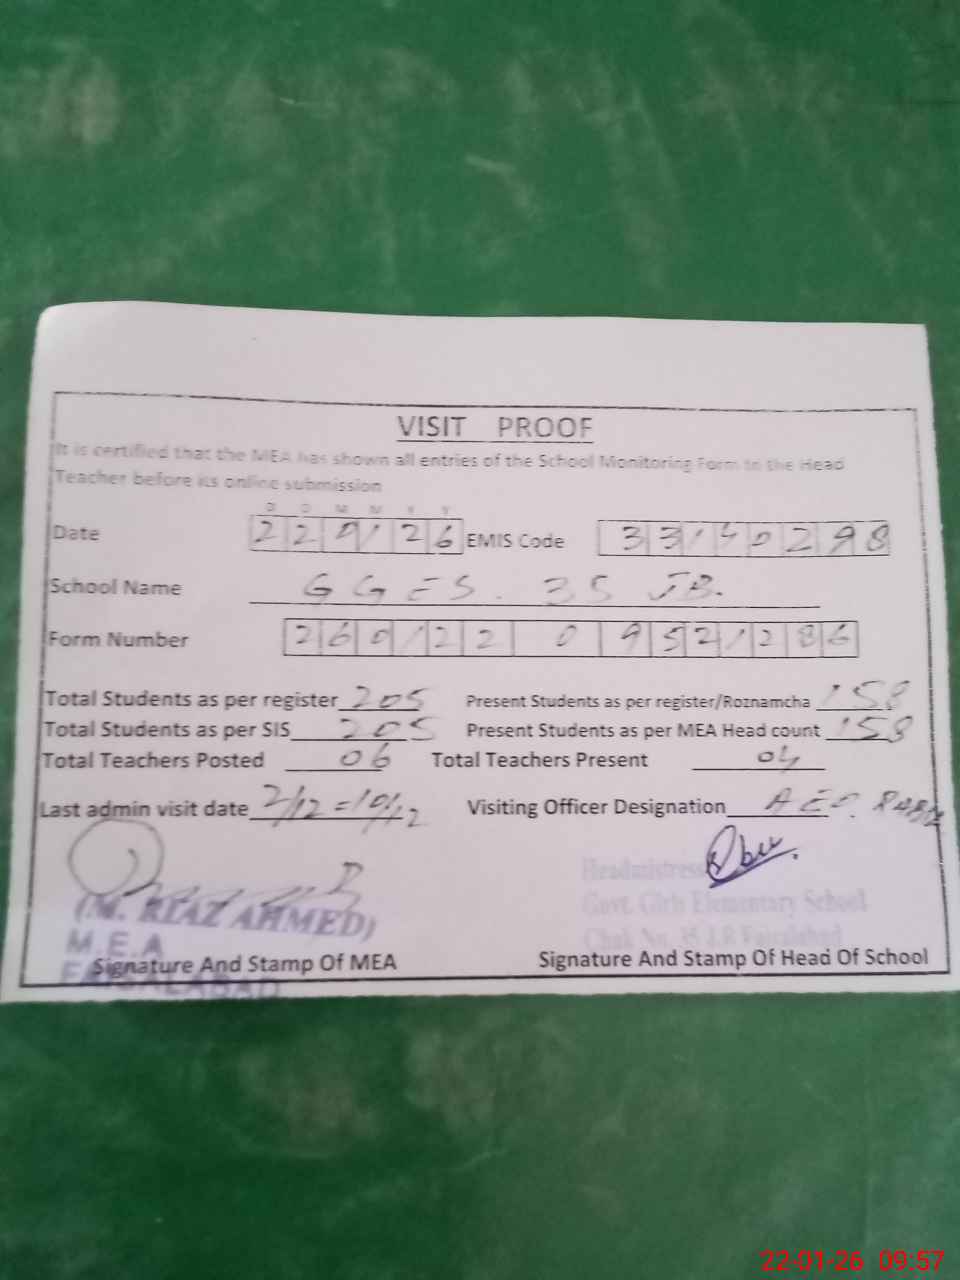 VISIT PROOF
It is certified that the MEA has shown all entries of the School Monitoring Form to the Head
Teacher before its online submission
D D M M Y Y
Date 220126 EMIS Code 33130298
School Name GGES. 35 JB.
Form Number 260122 0 9521286
Total Students as per register 205 Present Students as per register/Roznamcha 158
Total Students as per SIS 205 Present Students as per MEA Head count 158
Total Teachers Posted 06 Total Teachers Present 04
Last admin visit date 2/12 = 10/12 Visiting Officer Designation AEO
(M. RIAZ AHMED)
M.E.A
FAISALABAD
Signature And Stamp Of MEA
Headmistress
Govt. Girls Elementary School
Chak No. 35 J.B Faisalabad
Signature And Stamp Of Head Of School
22-01-26 09:57